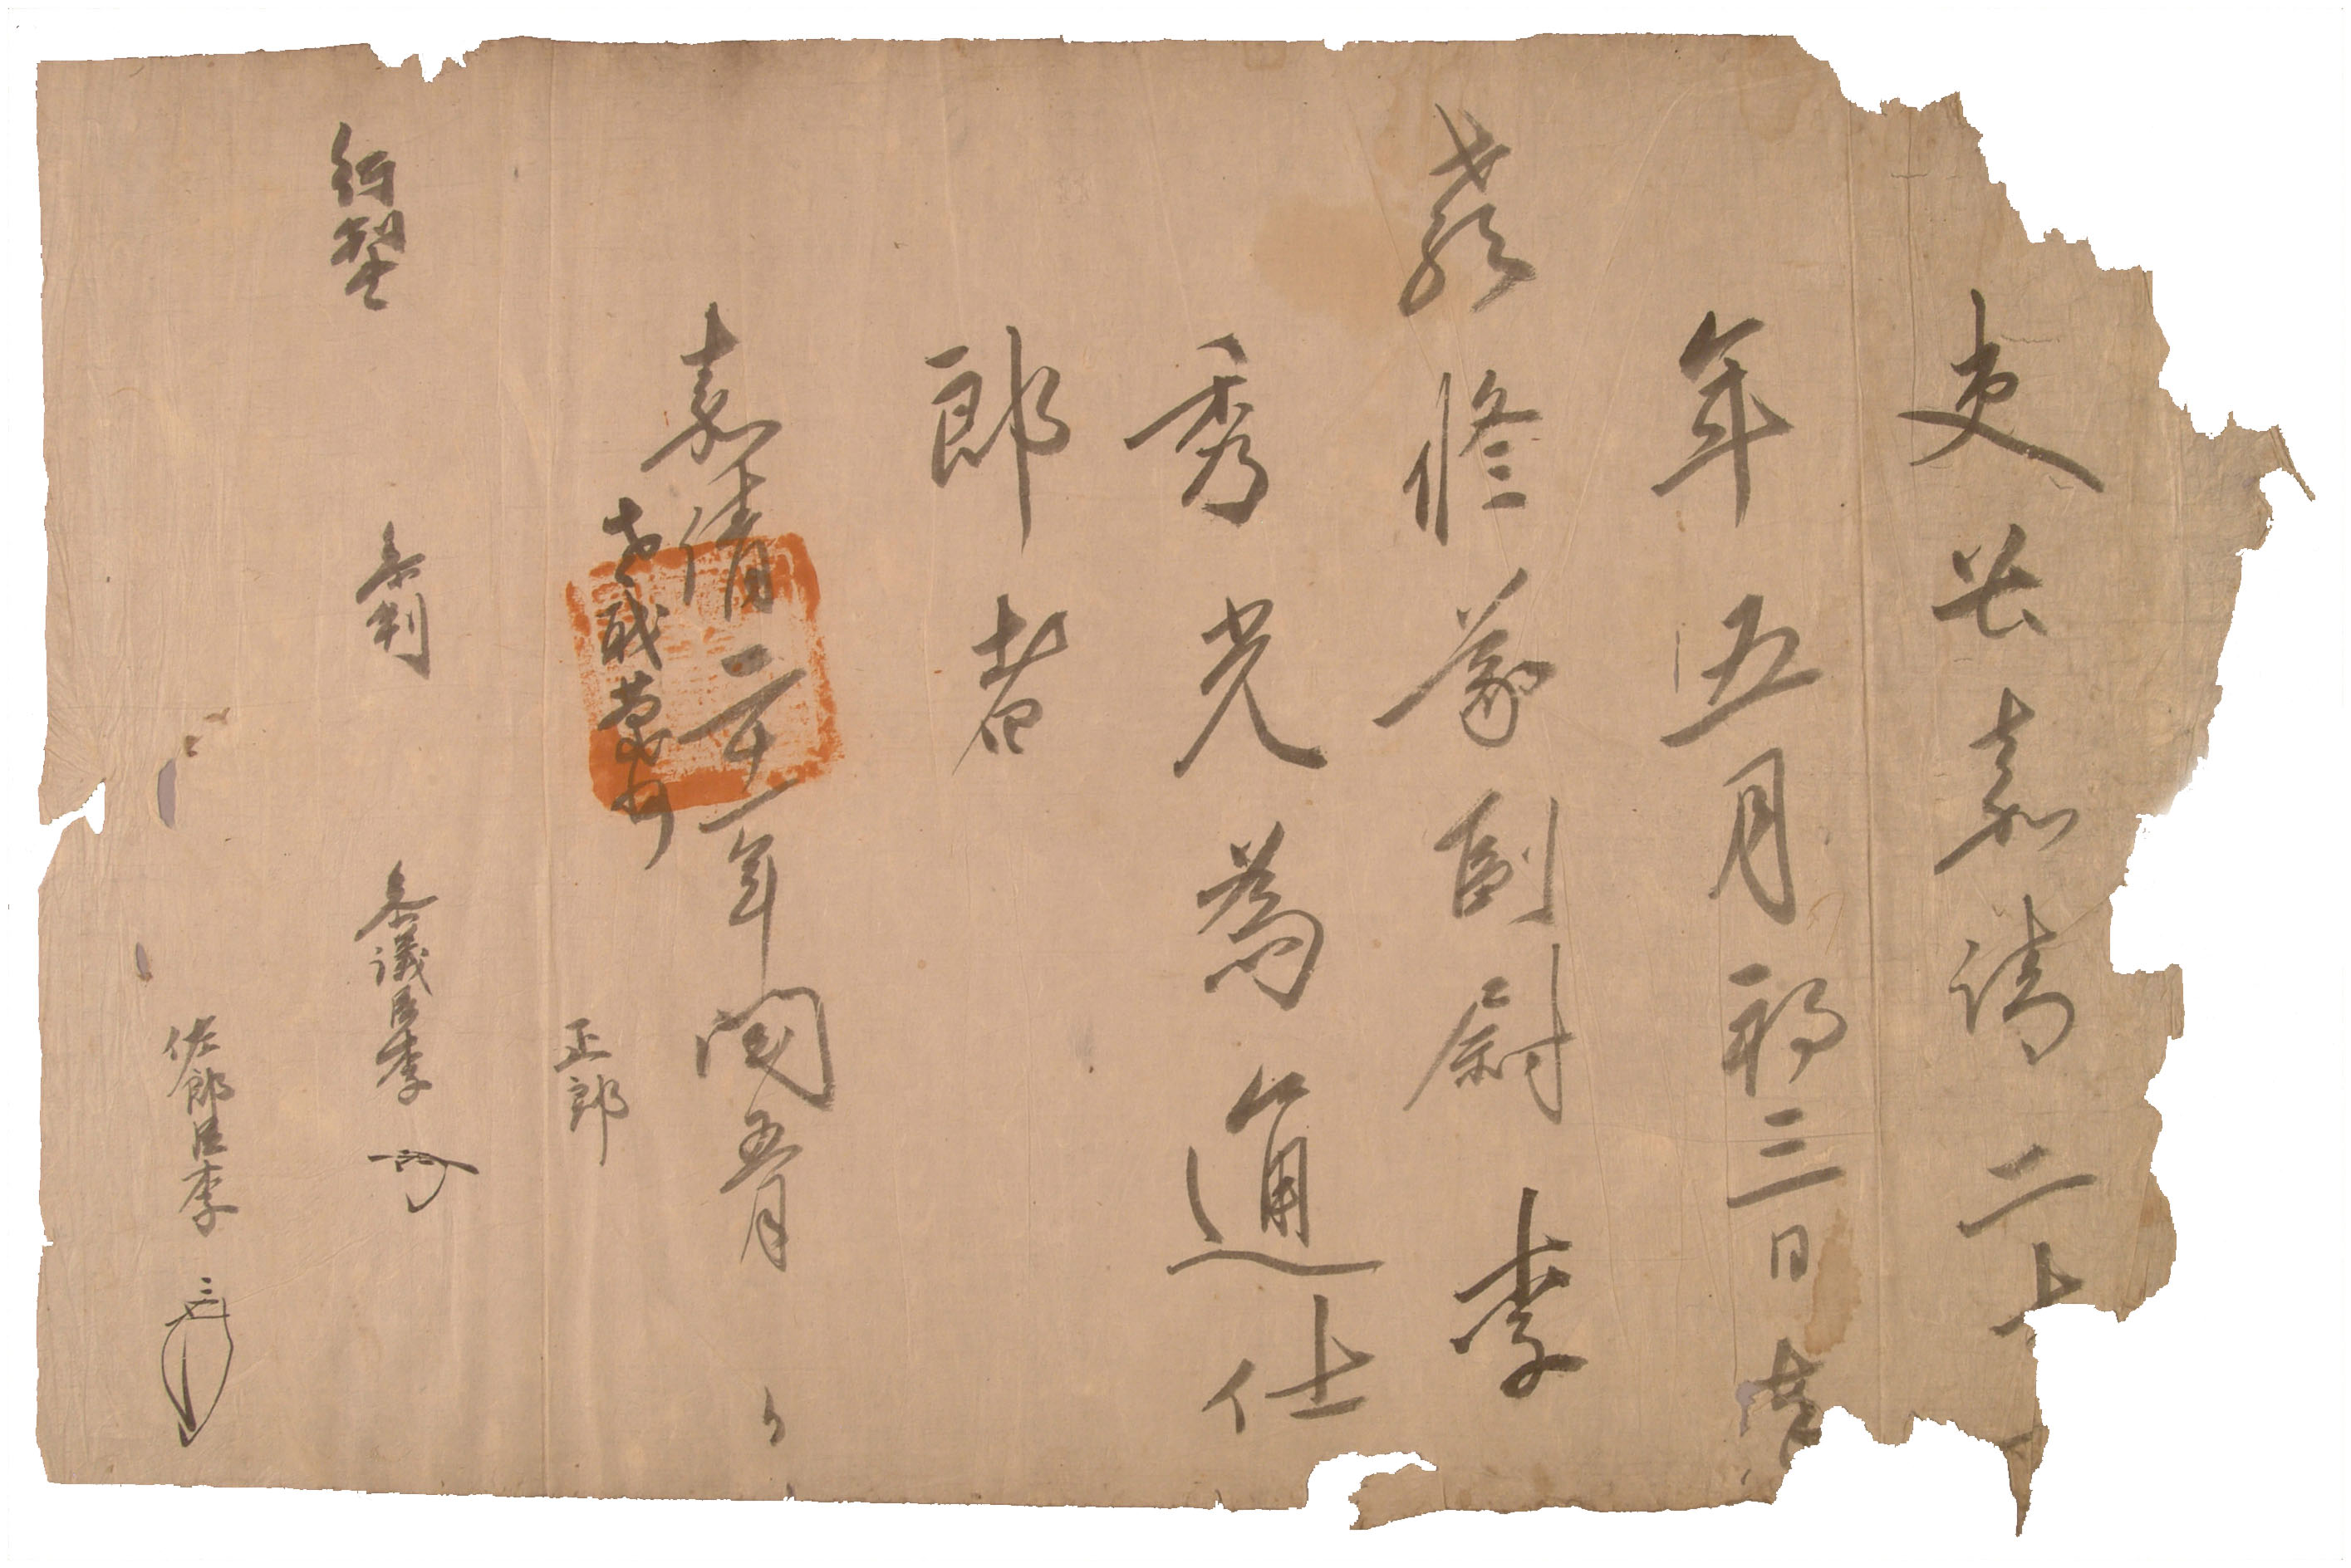 吏曹嘉靖二十
年五月初三日奉
教修義副尉李
秀光爲通仕
郎者
嘉靖二十一年閏五月 日
正郎
行判書 參判 參議臣李
佐郎臣李